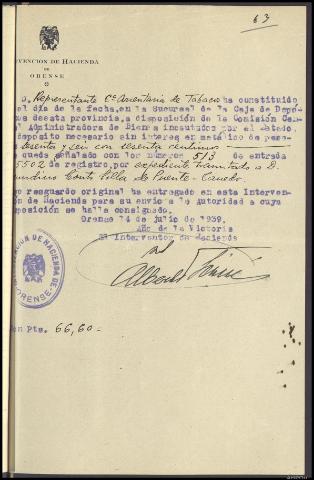 63
VENCION DE HACIENDA
DE
ORENSE
D. Representante Cª Arrendataria de Tabacos ha constituido
el día de la fecha, en la Sucursal de la Caja de Depó-
de esta provincia, a disposición de la Comisión Cen-
Administradora de Bienes incautados por el Estado,
depósito necesario sin interés en metálico de pese-
sesenta y seis con sesenta centimos
queda señalado con los números 513 de entrada
5502 de registro, por expediente tramitado a D.
Conts Villa de Puente-Canedo.
resguardo original ha entregado en esta Interven-
ón de Hacienda para su envío a la autoridad a cuya
posición se halla consignado.
Orense 14 de julio de 1939.
Año de la Victoria
El Interventor de Hacienda
DE HACIENDA DE
ORENSE
on Pts. 66,60=